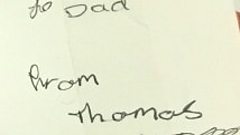 to Dad
from
Thomas